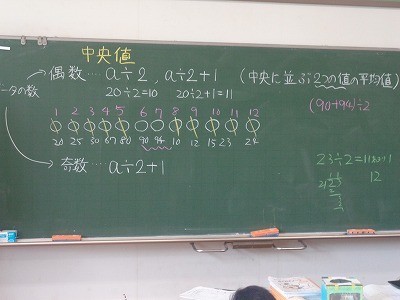 中央値
偶数…a÷2, a÷2+1 (中央に並ぶ2つの値の平均値)
20÷2=10 20÷2+1=11
(90+94)÷2
ータの数
1 2 3 4 5 6 7 8 9 10 11 12
20 25 30 67 80 90 94 10 12 15 23 24
奇数…a÷2+1
23÷2=11あまり1
12